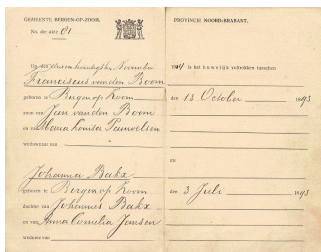 GEMEENTE BERGEN-OP-ZOOM. PROVINCIE NOORD-BRABANT.
No. der akte 61
Op den een en twintigsten November 1914 is het huwelijk voltrokken tusschen
Franciscus van den Boom
geboren te Bergen op Zoom den 13 October 1893
zoon van Jan van den Boom
en van Maria Louisa Pauwelsen
weduwnaar van
en
Johanna Bakx
geboren te Bergen op Zoom den 3 Juli 1893
dochter van Johannes Bakx
en van Anna Cornelia Jansen
weduwe van